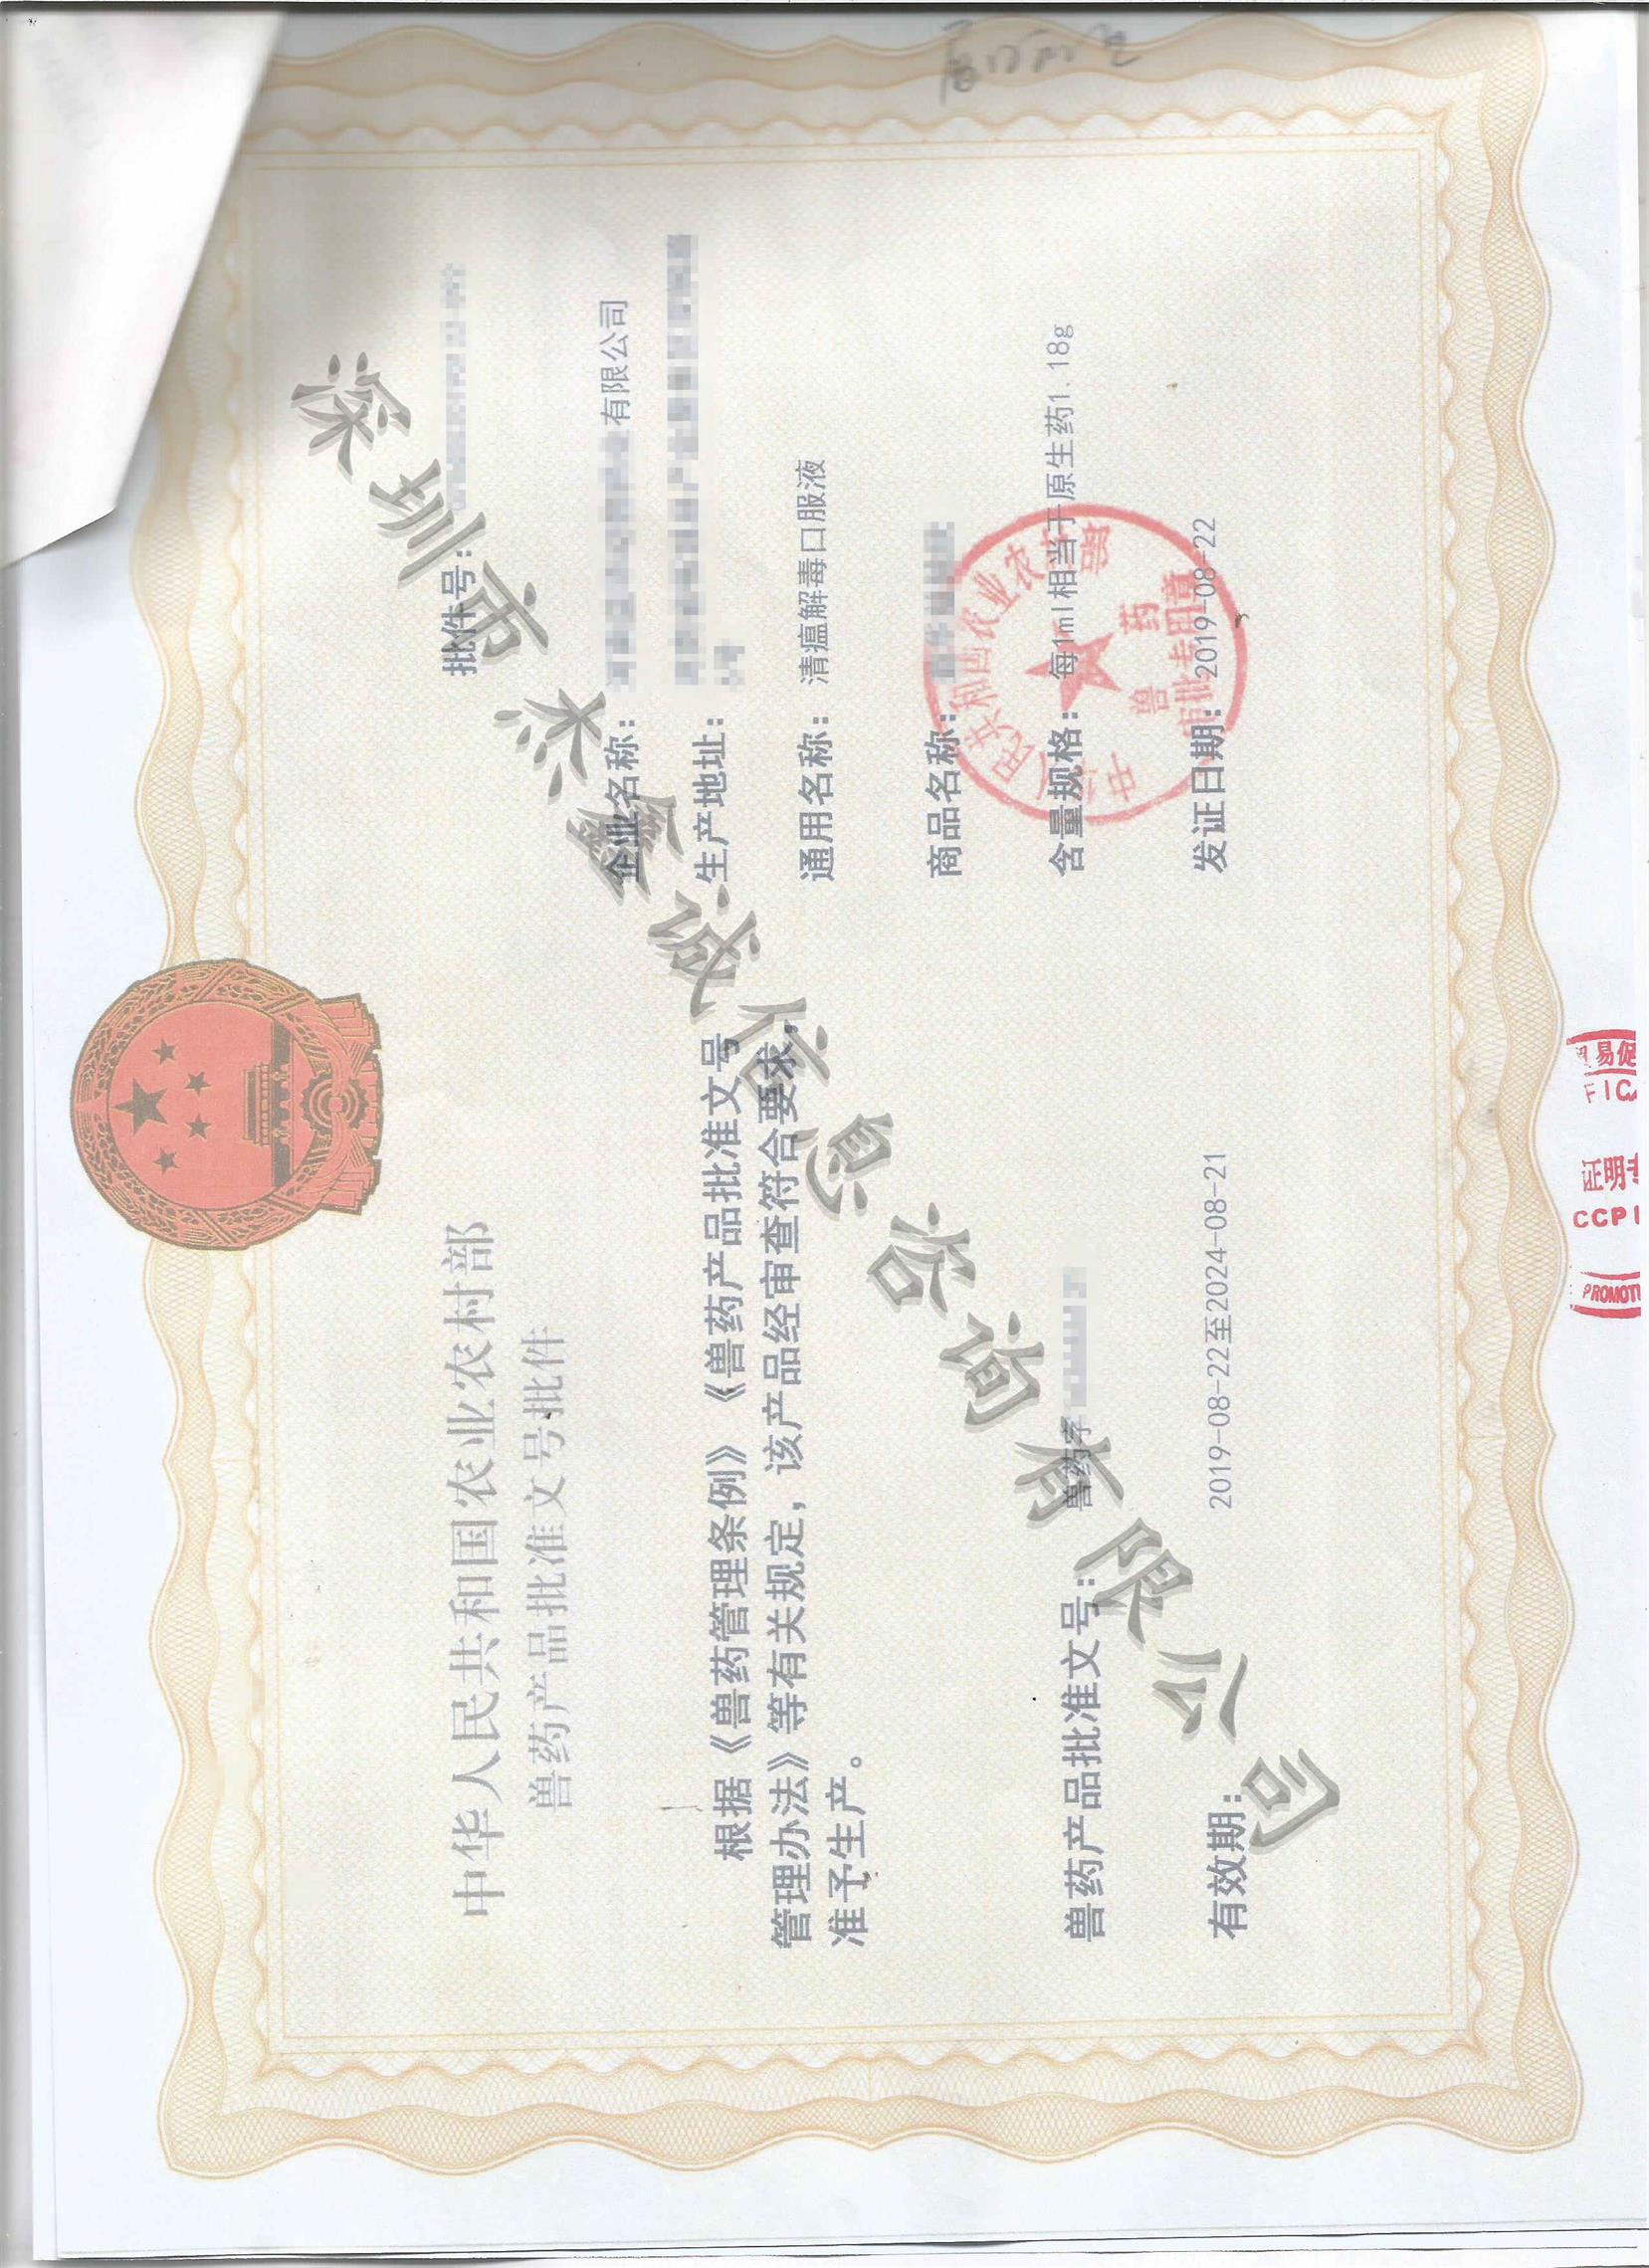 中华人民共和国农业农村部
兽药产品批准文号批件
根据《兽药管理条例》《兽药产品批准文号
管理办法》等有关规定，该产品经审查符合要求，
准予生产。
兽药产品批准文号：兽药字
有效期：2019-08-22至2024-08-21
批件号：
企业名称：有限公司
生产地址：
通用名称：清瘟解毒口服液
商品名称：
含量规格：每1ml相当于原生药1.18g
发证日期：2019-08-22
中华人民共和国农业农村部
兽药
审批专用章
深圳市杰鑫诚信息咨询有限公司
贸易促
证明
CCPI
PROMOTI